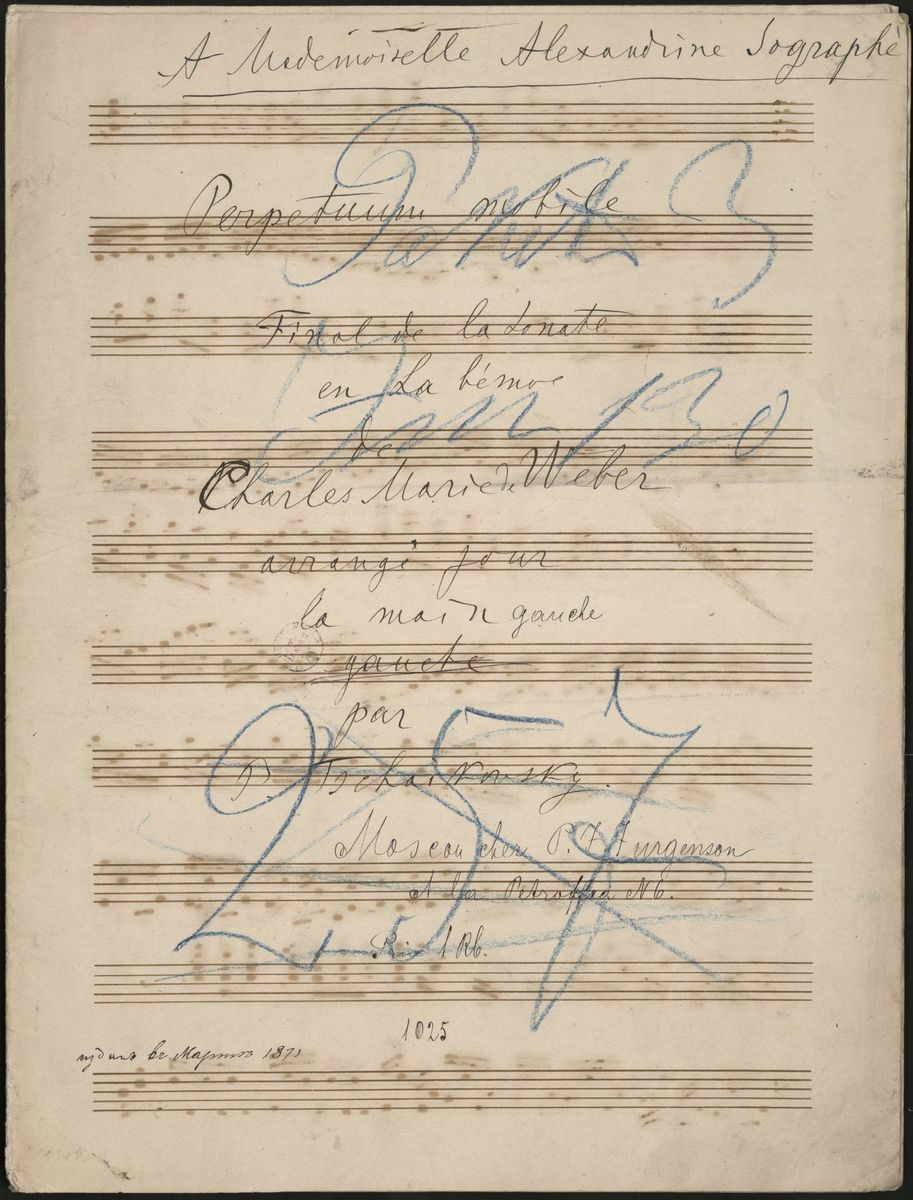 A Mademoiselle Alexandrine Sographé
Perpetuum mobile
3
Final de la Sonate
en La bémol
130
de
Charles Marie de Weber
arrangé pour
la main gauche
gauche
par
P. Tschaikovsky.
257
Moscou chez P. I. Jurgenson
A la Petrofka N 6.
Prix 1 Rb.
1025
изданъ въ Мартѣ 1871